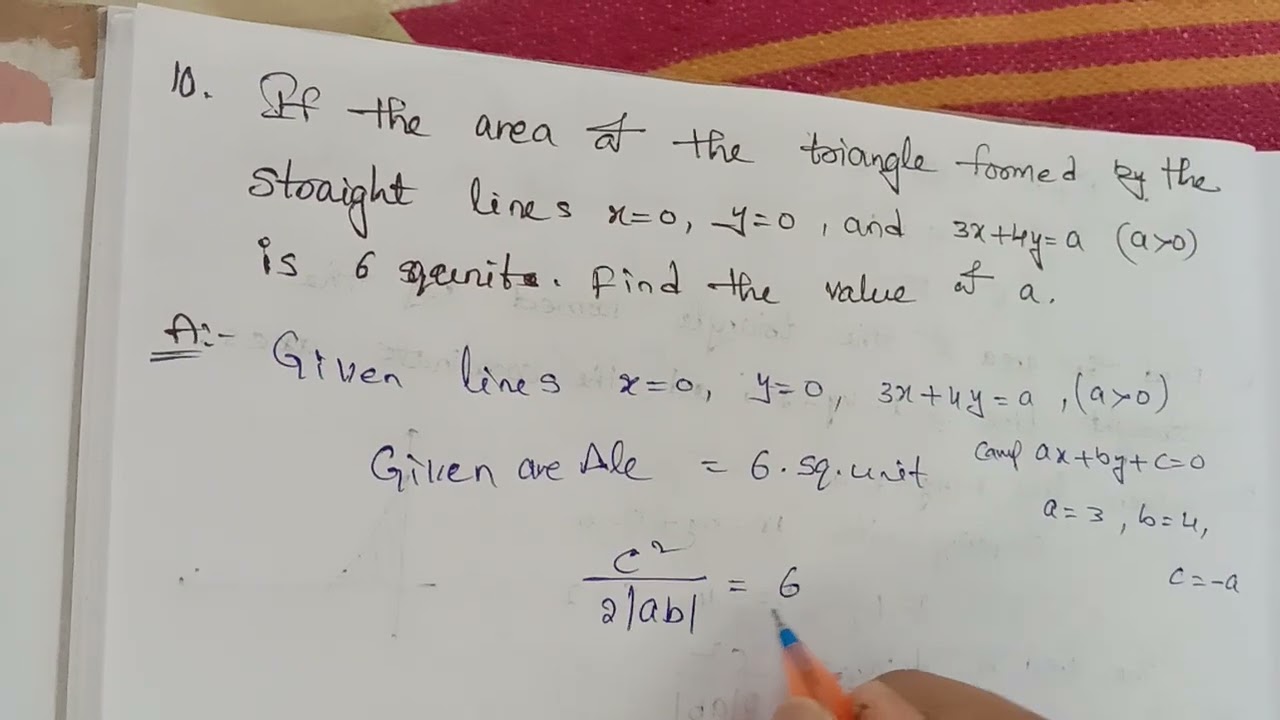 10. If the area of the triangle formed by the
straight lines x=0, y=0, and 3x+4y=a (a>0)
is 6 sq.units. Find the value of a.
A:- Given lines x=0, y=0, 3x+4y=a, (a>0)
Given are Δle = 6.sq.unit
Comp ax+by+c=0
a=3, b=4,
c=-a
c²/2|ab| = 6